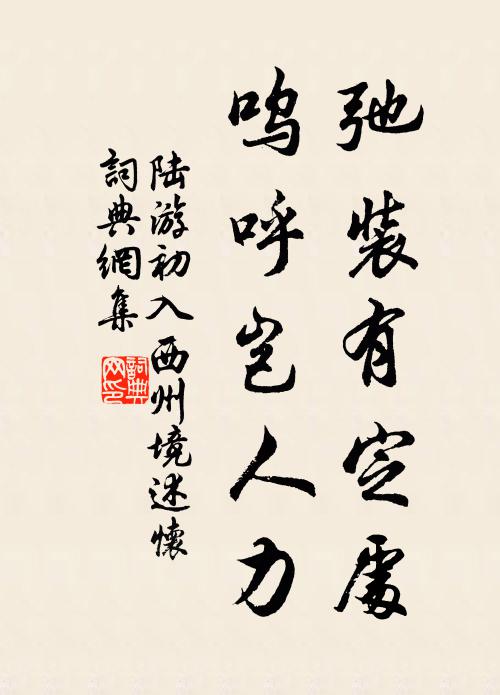 弛裝有定處
嗚呼豈人力
陆游初入西州境述懷
詞典網集
詞典
网印